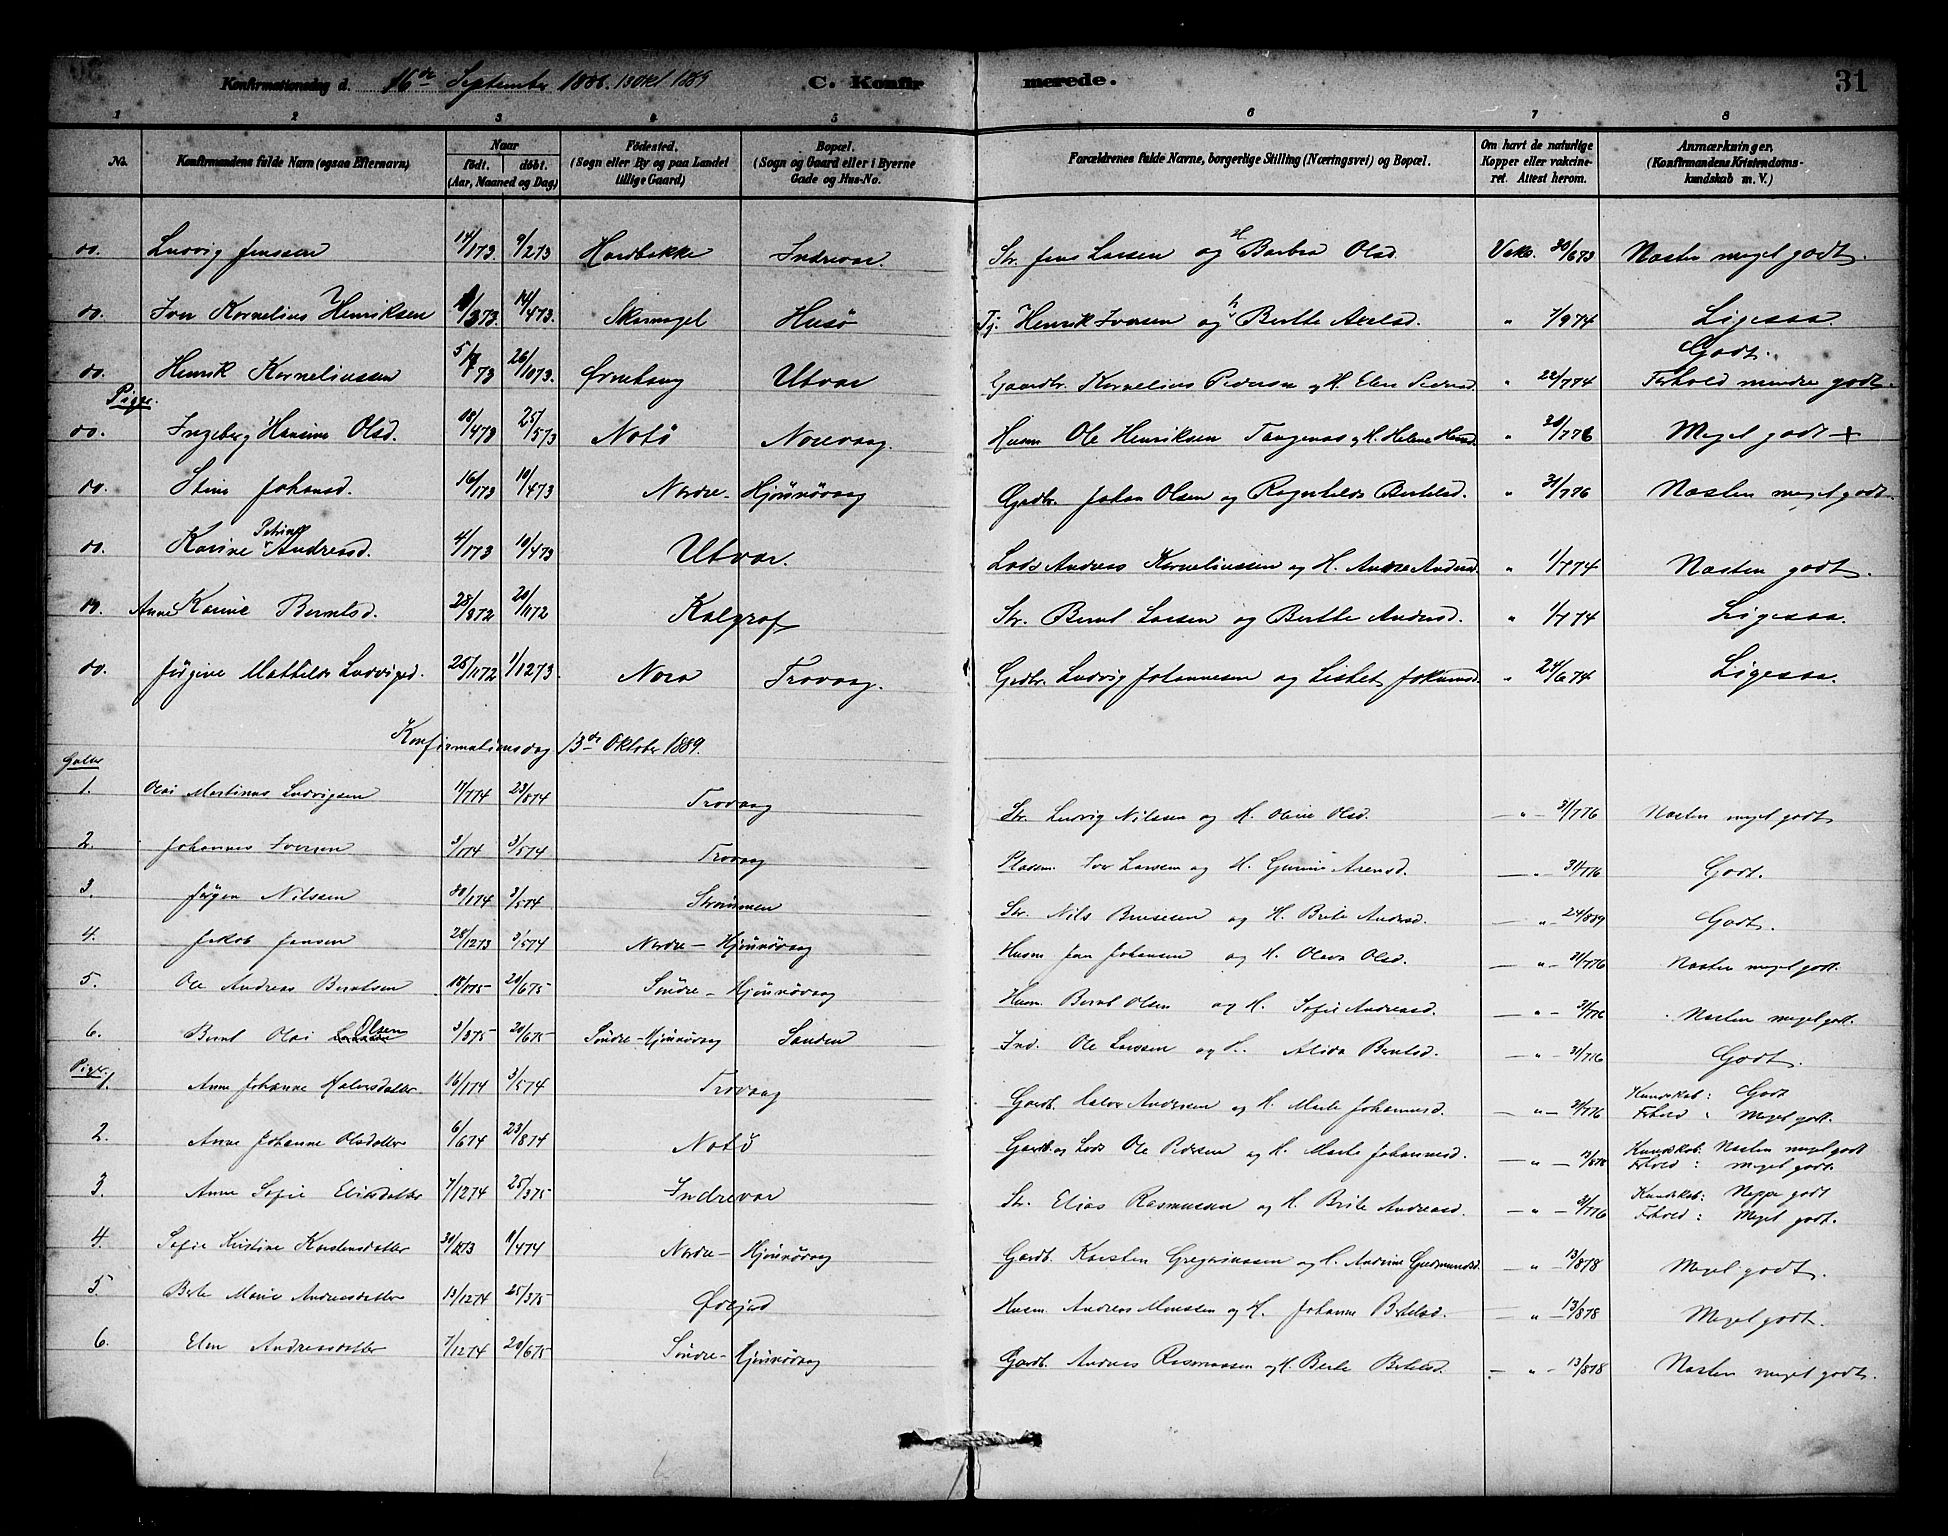 Konfirmationsdag d. 16de September 1888. 13 Okt 1889 C. Konfirmerede. 31
1 2 3 4 5 6 7 8
No. Konfirmandens fulde Navn (ogsaa Efternavn) Naar født. døbt. (Aar, Maaned og Dag) Fødested. (Sogn eller By og paa Landet tillige Gaard) Bopæl. (Sogn og Gaard eller i Byerne Gade og Hus-No. Forældrenes fulde Navne, borgerlige Stilling (Næringsvei) og Bopæl. Om havt de naturlige Kopper eller vakcineret. Attest herom. Anmærkninger, (Konfirmandens Kristendomskundskab m. V.)
00. Ludvig Jenssen 14/173. 9/273 Hardbakke Indrevær. Str. Jens Larsen og H Barbra Olsd. Vakc. 30/673 Næsten meget godt.
00. Iver Kornelius Henriksen /373. 14/473. Husø Tj. Henrik Iversen og h Berthe d. " 7/974 Ligesaa.
00. Henrik Korneliussen 26/1073. Utvær Gaardbr. Kornelius Pedersen og H. Elen Pedersd. " 22/774 Godt. Forhold mindre godt.
Piger.
00. Ingeborg Hansine Olsd. 18/473 25/573 Notø Norevaag. Husm Ole Henriksen Tangenæs og H. Helene Hansd. " 30/776 Meget godt +
00. Stine Johansd. 16/173 10/473 Nordre- Hjønnøvaag Grdbr. Johan Olsen og Ragnhilde Bertelsd. " 31/776 Næsten meget godt.
00. Karine Petrine Andreasd. 4/173 10/473 Utvær. Lods Andreas Korneliussen og H. Anne Andersd. " 1/774 Næsten godt.
00. Anne Karine Berntsd. 28/972 20/1172 Kalgraf Str. Bernt Larsen og Berthe Andersd. " 1/774 Ligesaa.
00. Jørgine Mathilde Ludvigsd. 25/1172 1/1273. Nora Trovaag. Grdbr. Ludvig Johannesen og Lisbet Jokumsd. " 24/674 Ligesaa.
Konfirmationsdag 13de Oktober 1889.
Gutter
1. Olai Martinus Ludvigsen 11/774 23/874 Trovaag Str. Ludvig Nilssen og H. Oline Olsd. — " — 31/776 Næsten meget godt
2. Johannes Iversen 3/174 3/574 Trovaag Pladsm. Iver Larsen og H. Gurine d. — " — 31/776 Godt.
3. Jørgen Nilssen 30/174 3/574 Strømmen Str. Nils og H. Brite Andersd. — " 24/889 Godt.
4. Jakob Jansen 28/1273 3/574 Nordre- Hjønnøvaag Husm Jan Johansen og H. Olava Olsd. — " — 31/776 Næsten meget godt.
5. Ole Andreas Berntsen 18/175- 20/675- Søndre- Hjønnøvaag Husm. Bernt Olsen og H. Sofie Andreasd. — " — 31/776 Næsten meget godt.
6. Bernt Olai Olsen 3/375- 20/675- Søndre-Hjønnøvaag Sanden Ind. Ole Larssen og H. Alida Berntsd. — " — 31/776 Godt.
Piger.
1. Anne Johanne Halvorsdatter 16/174 3/574 Trovaag Gaardb. Halvor Andersen og H. Marte Johannesd. — " — 31/776 Kundskab: Godt Forhold " Meget godt.
2. Anne Johanne Olsdatter 6/674 23/874 Notø Gaardb. og Lods Ole Pedersen og H. Marte Johannesd. — " — 13/878 Kundskab: Næsten meget godt Forhold : meget godt.
3. Anne Sofie Eliasdatter 7/1274 25/375 Indrevær Str. Elias Rasmussen og H. Brite Andreasd. — " — 31/776 Kundskab: Neppe godt Forhold : Meget godt.
4. Sofie Kristine Karstensdatter 11/474 Nordre- Hjønnøvaag Gaardb. Karsten Gregoriussen og H. Andrine Gudmundsd. — " — 13/878 Meget godt.
5. Berte Marie Andreasdatter 13/1274 25/375 Husm. Andreas Monssen og H. Johanne Bertelsd. — " — 13/878 Meget godt.
6. Elen Andreasdatter 7/1274 20/675 Søndre- Hjønnøvaag Gaardb. Andreas Rasmussen og H. Berte Bertelsd. — " — 13/878 Næsten meget godt.